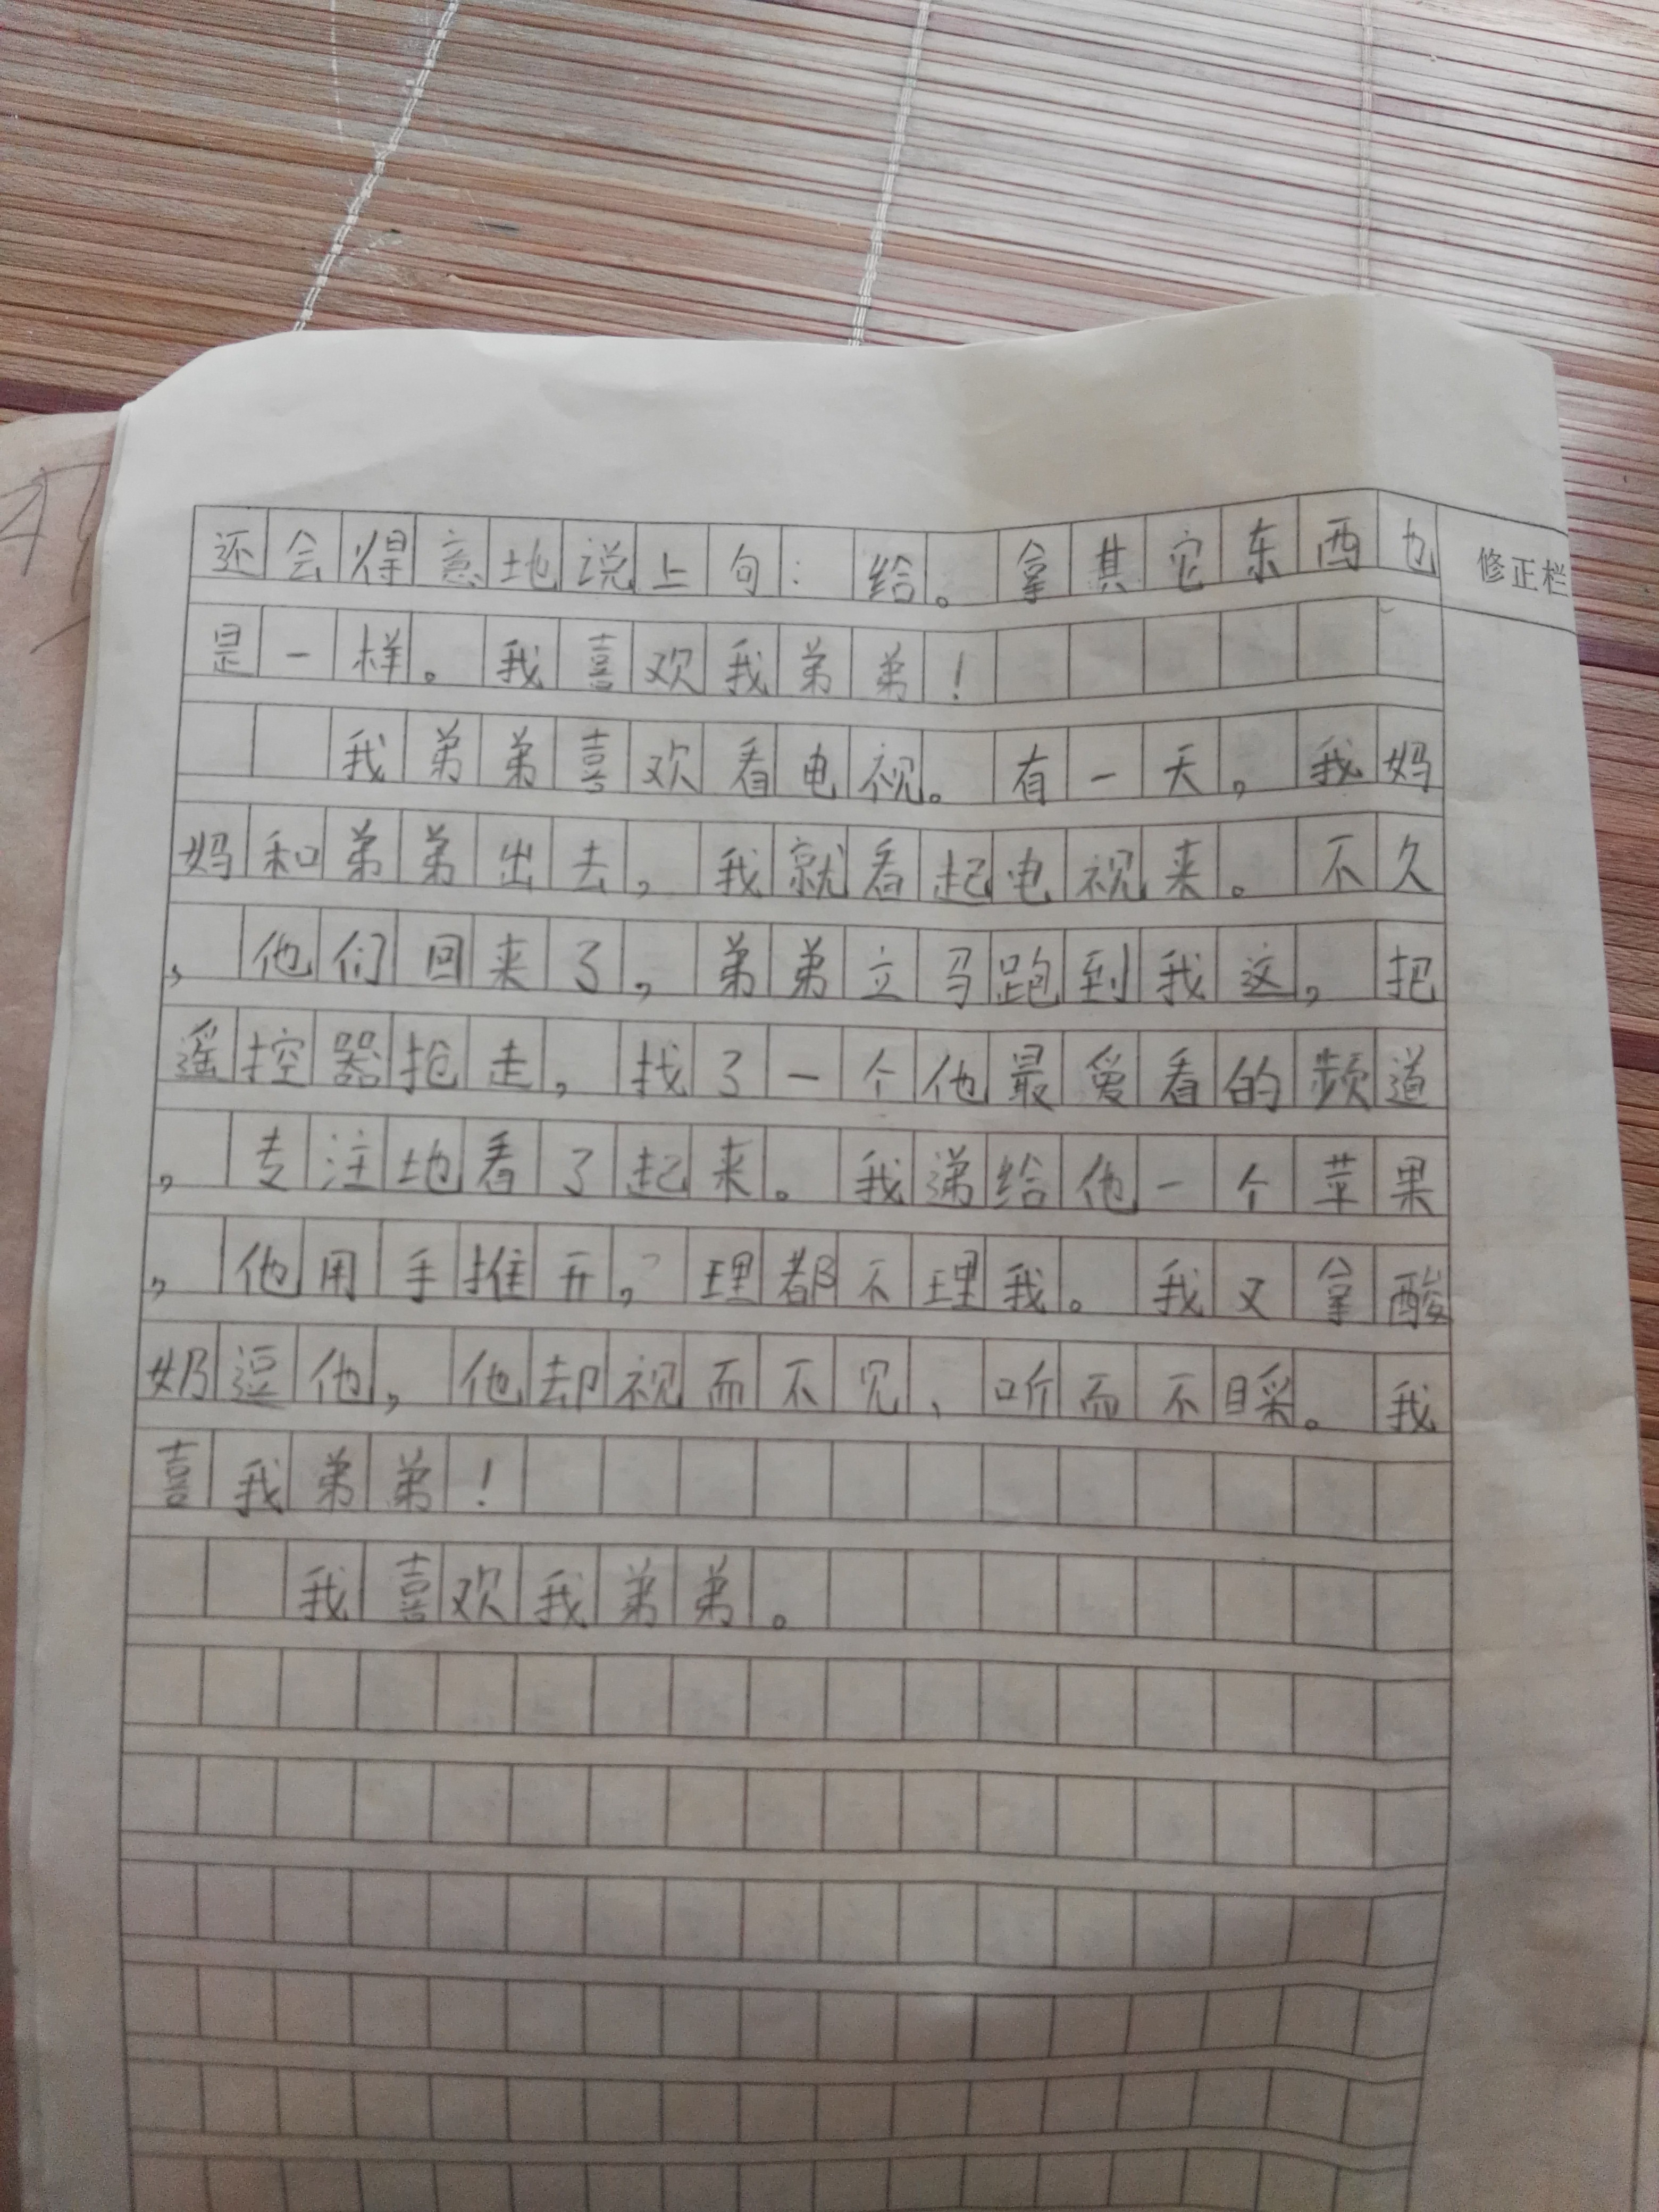 还会得意地说上句：给。拿其它东西也
修正栏
是一样。我喜欢我弟弟！
我弟弟喜欢看电视。有一天，我妈
妈和弟弟出去，我就看起电视来。不久
，他们回来了，弟弟立马跑到我这，把
遥控器抢走，找了一个他最爱看的频道
，专注地看了起来。我递给他一个苹果
，他用手推开，理都不理我。我又拿酸
奶逗他，他却视而不见、听而不睬。我
喜我弟弟！
我喜欢我弟弟。